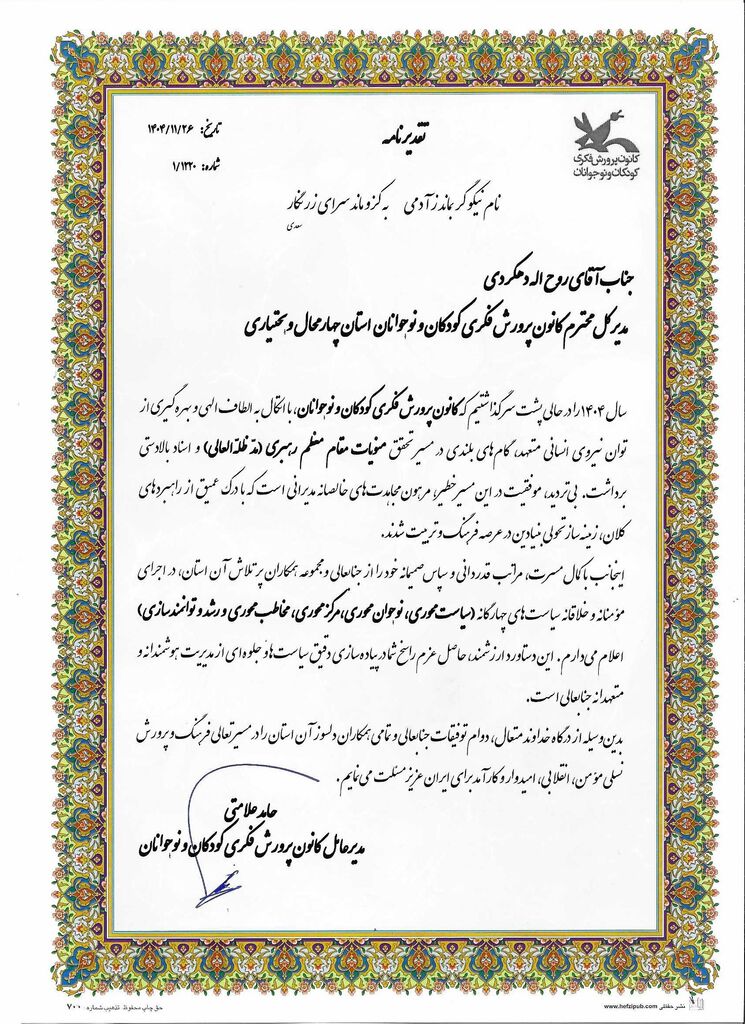 کانون پرورش فکری
کودکان و نوجوانان
تقدیرنامه
تاریخ: ۱۴۰۴/۱۱/۲۶
شماره: ۱/۱۲۲۰
نام نیکو گر بماند ز آدمی به کزو ماند سرای زرنگار
سعدی
جناب آقای روح اله دهکردی
مدیرکل محترم کانون پرورش فکری کودکان و نوجوانان استان چهارمحال و بختیاری
سال ۱۴۰۴ را در حالی پشت سر گذاشتیم که کانون پرورش فکری کودکان و نوجوانان، با اتکال به الطاف الهی و بهره‌گیری از
توان نیروی انسانی متعهد، گام‌های بلندی در مسیر تحقق منویات مقام معظم رهبری (مدّ ظله‌العالی) و اسناد بالادستی
برداشت. بی‌تردید، موفقیت در این مسیر خطیر، مرهون مجاهدت‌های خالصانه مدیرانی است که با درک عمیق از راهبردهای
کلان، زمینه‌ساز تحولی بنیادین در عرصه فرهنگ و تربیت شدند.
اینجانب با کمال مسرت، مراتب قدردانی و سپاس صمیمانه خود را از جنابعالی و مجموعه همکاران پرتلاش آن استان، در اجرای
مؤمنانه و خلاقانه سیاست‌های چهارگانه (سیاست‌محوری، نوجوان‌محوری، مرکزمحوری، مخاطب‌محوری و رشد و توانمندسازی)
اعلام می‌دارم. این دستاورد ارزشمند، حاصل عزم راسخ شما در پیاده‌سازی دقیق سیاست‌ها و جلوه‌ای از مدیریت هوشمندانه و
متعهدانه جنابعالی است.
بدین‌وسیله از درگاه خداوند متعال، دوام توفیقات جنابعالی و تمامی همکاران دلسوز آن استان را در مسیر تعالی فرهنگ و پرورش
نسلی مؤمن، انقلابی، امیدوار و کارآمد برای ایران عزیز مسئلت می‌نمایم.
حامد علامتی
مدیرعامل کانون پرورش فکری کودکان و نوجوانان
نشر حفظی www.hefzipub.com
حق چاپ محفوظ تذهیبی شماره: ۷۰۰